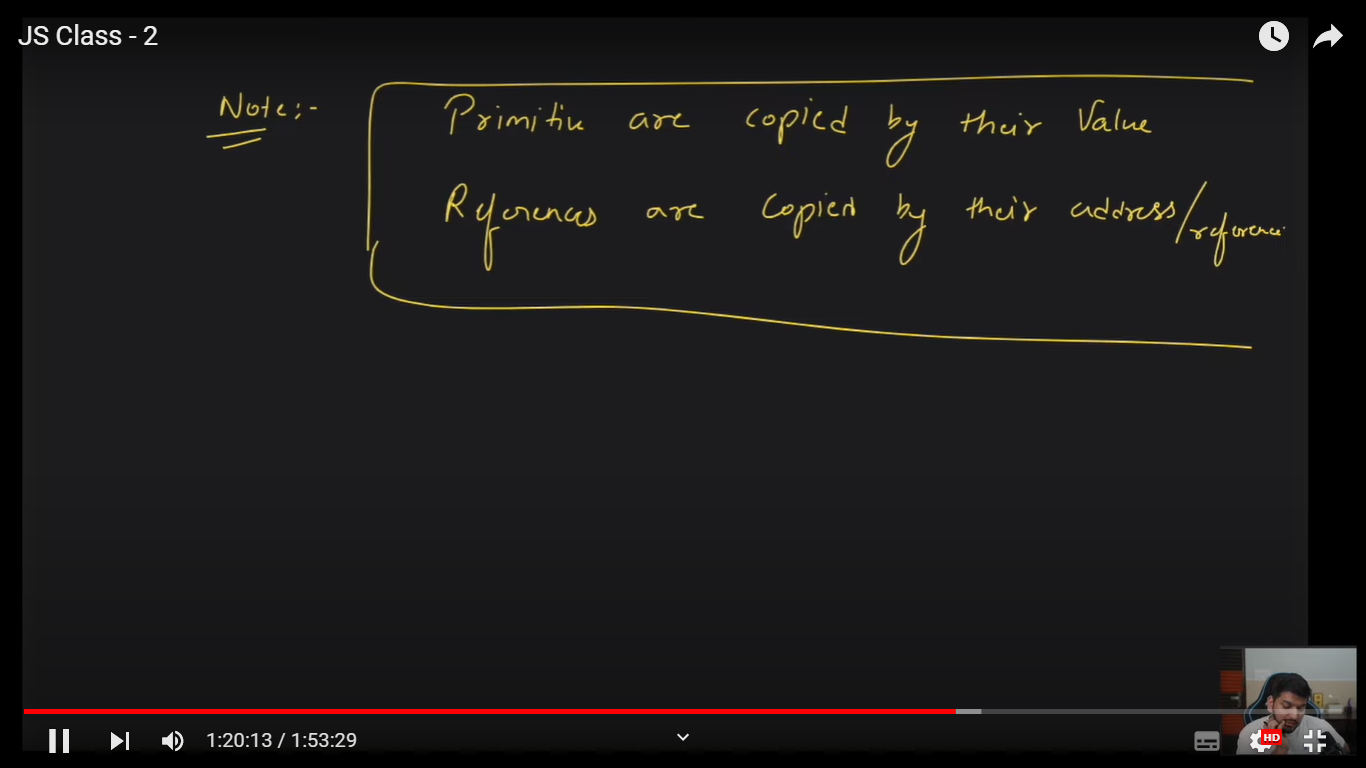 JS Class - 2
Note:-
Primitive are copied by their Value
References are copied by their address/reference
1:20:13 / 1:53:29
HD